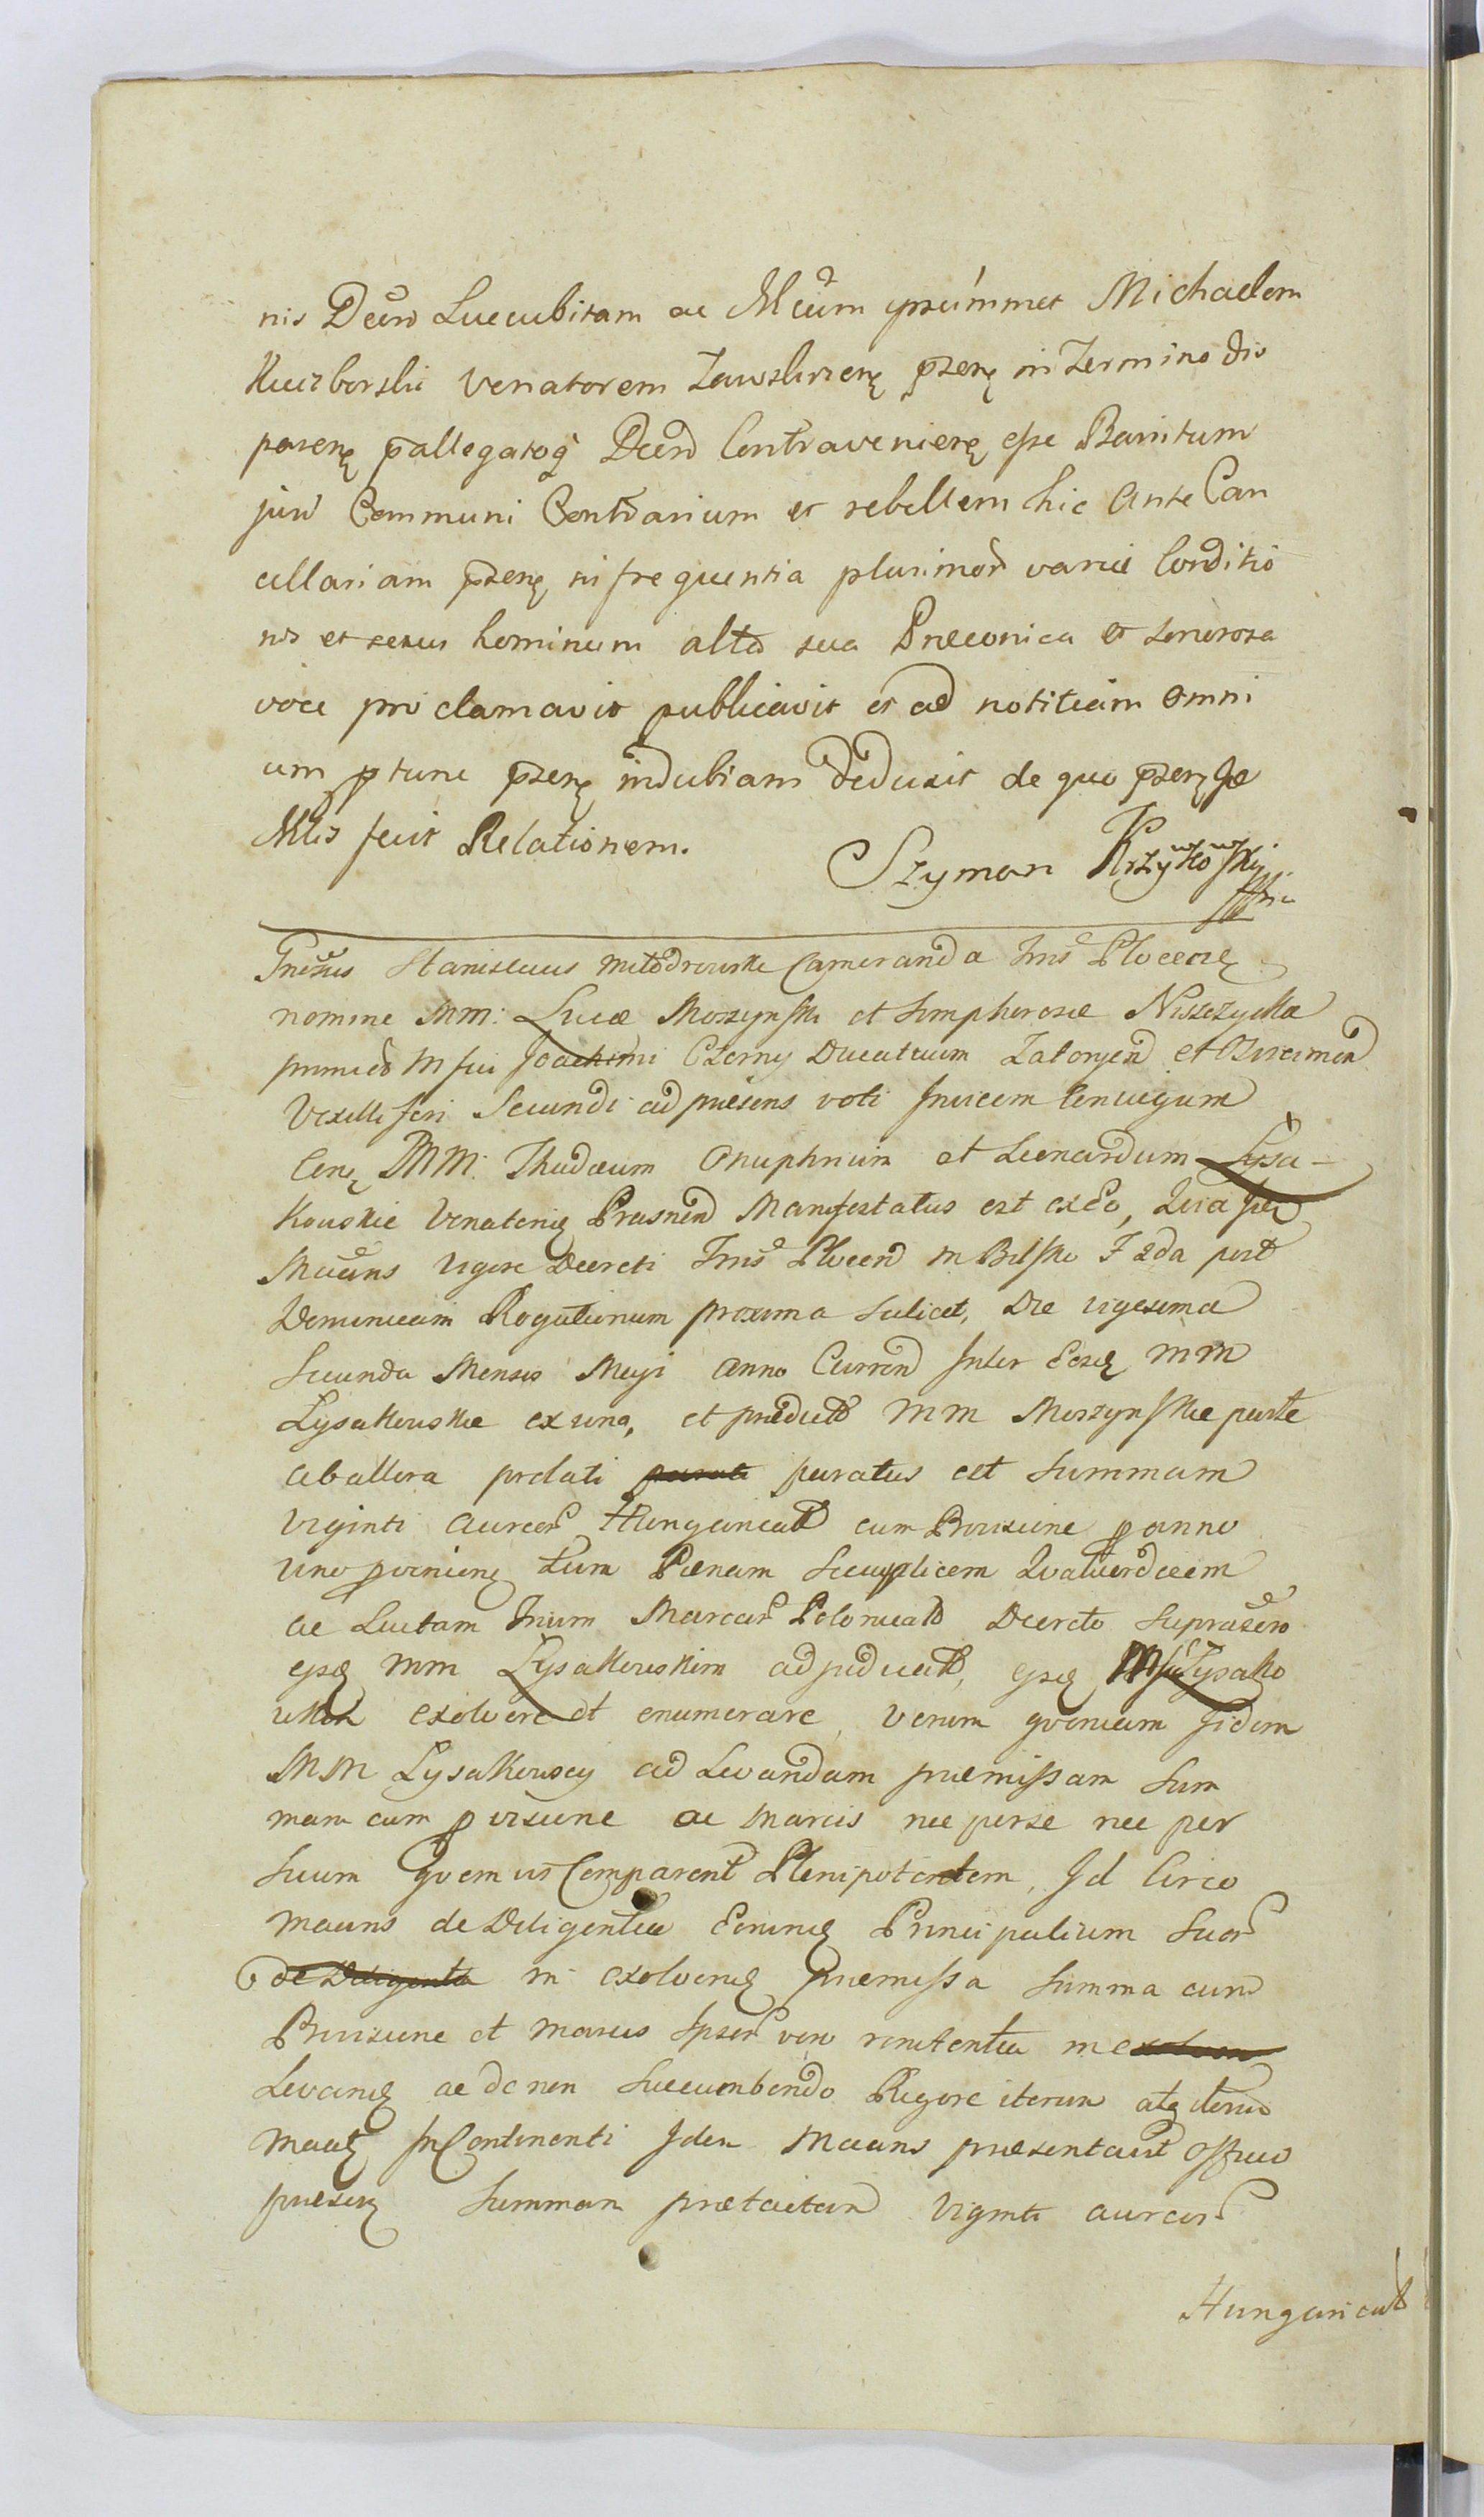 nis Decro Lucubitam ac Mcum ipsummet Michaelem
Kuczborski Venatorem Zawskrzenę pszenę in Termino dio
parenę pallegatoq Decro Contravenienę esse Banitum
juri Communi Contrarium et rebellem hic Ante Can
cellariam pszenę in frequentia plurimor variæ Conditio
nis et sexus hominum alta sua Præconica et sonorosa
voce proclamavit publicavit et ad notitiam omni
um ptunc pszenę indubiam deduxit de quo pszenę se
Mlis fecit Relationem.
Szymon Krzyżkowski
Gnesus Stanislaus Młodzowski Camerarid a Tris Plocensę
nomine MM: Lucæ Morzynski et Simphorosæ Niszczyckæ
primid M fui Joachimi Czerny Ducatuum Zatoryen et Oswiemen
Vexilliferi Secundi ad præsens voti Invicem Coniugum
Conę MM: Thadæum Onuphrium et Leonardum Lysa-
kowskie Venatorię Prasnen Manifestatus est ex Eo, Quia Ipse
Maans vigore Decreti Tris Plocen in Bilsko F 2da post
Dominicam Rogationum proxima scilicet, Die vigesima
Secunda Mensis Maji anno Curren Inter Eosę MM
Lysakowskie ex una, et prædict MM Morzynskie parte
ab altera prolati paratus est Summam
Viginti Aureor Hungarical cum Provisione p anno
uno provenienę tum Pænam Succuplicem Quatuordecem
ac Luctam Trium Marcar Polonical Decreto Suprascro
ejsę MM Lysakowskim adjudicat, ejsę MM Lysako
wskim exolvere et enumerare, verum quoniam Iidem
MM Lysakowscy ad Levandam præmissam Sum
mam cum pvisione ac Marcis nec per se nec per
suum quem vis Comparent Plenipotentem, Id Circo
maans de Diligentia Eorunę Principalium suor
de Diligentia in exolvenę præmissa Summa cum
Provisione et Marcis Ipsor vero renitentia in
Levanę ac de non Succumbendo Rigore iterum atq iterum
maatę In Continenti Idem Maans præsentavit Officio
præsenę Summam prætactam Viginti aureor
Hungarical